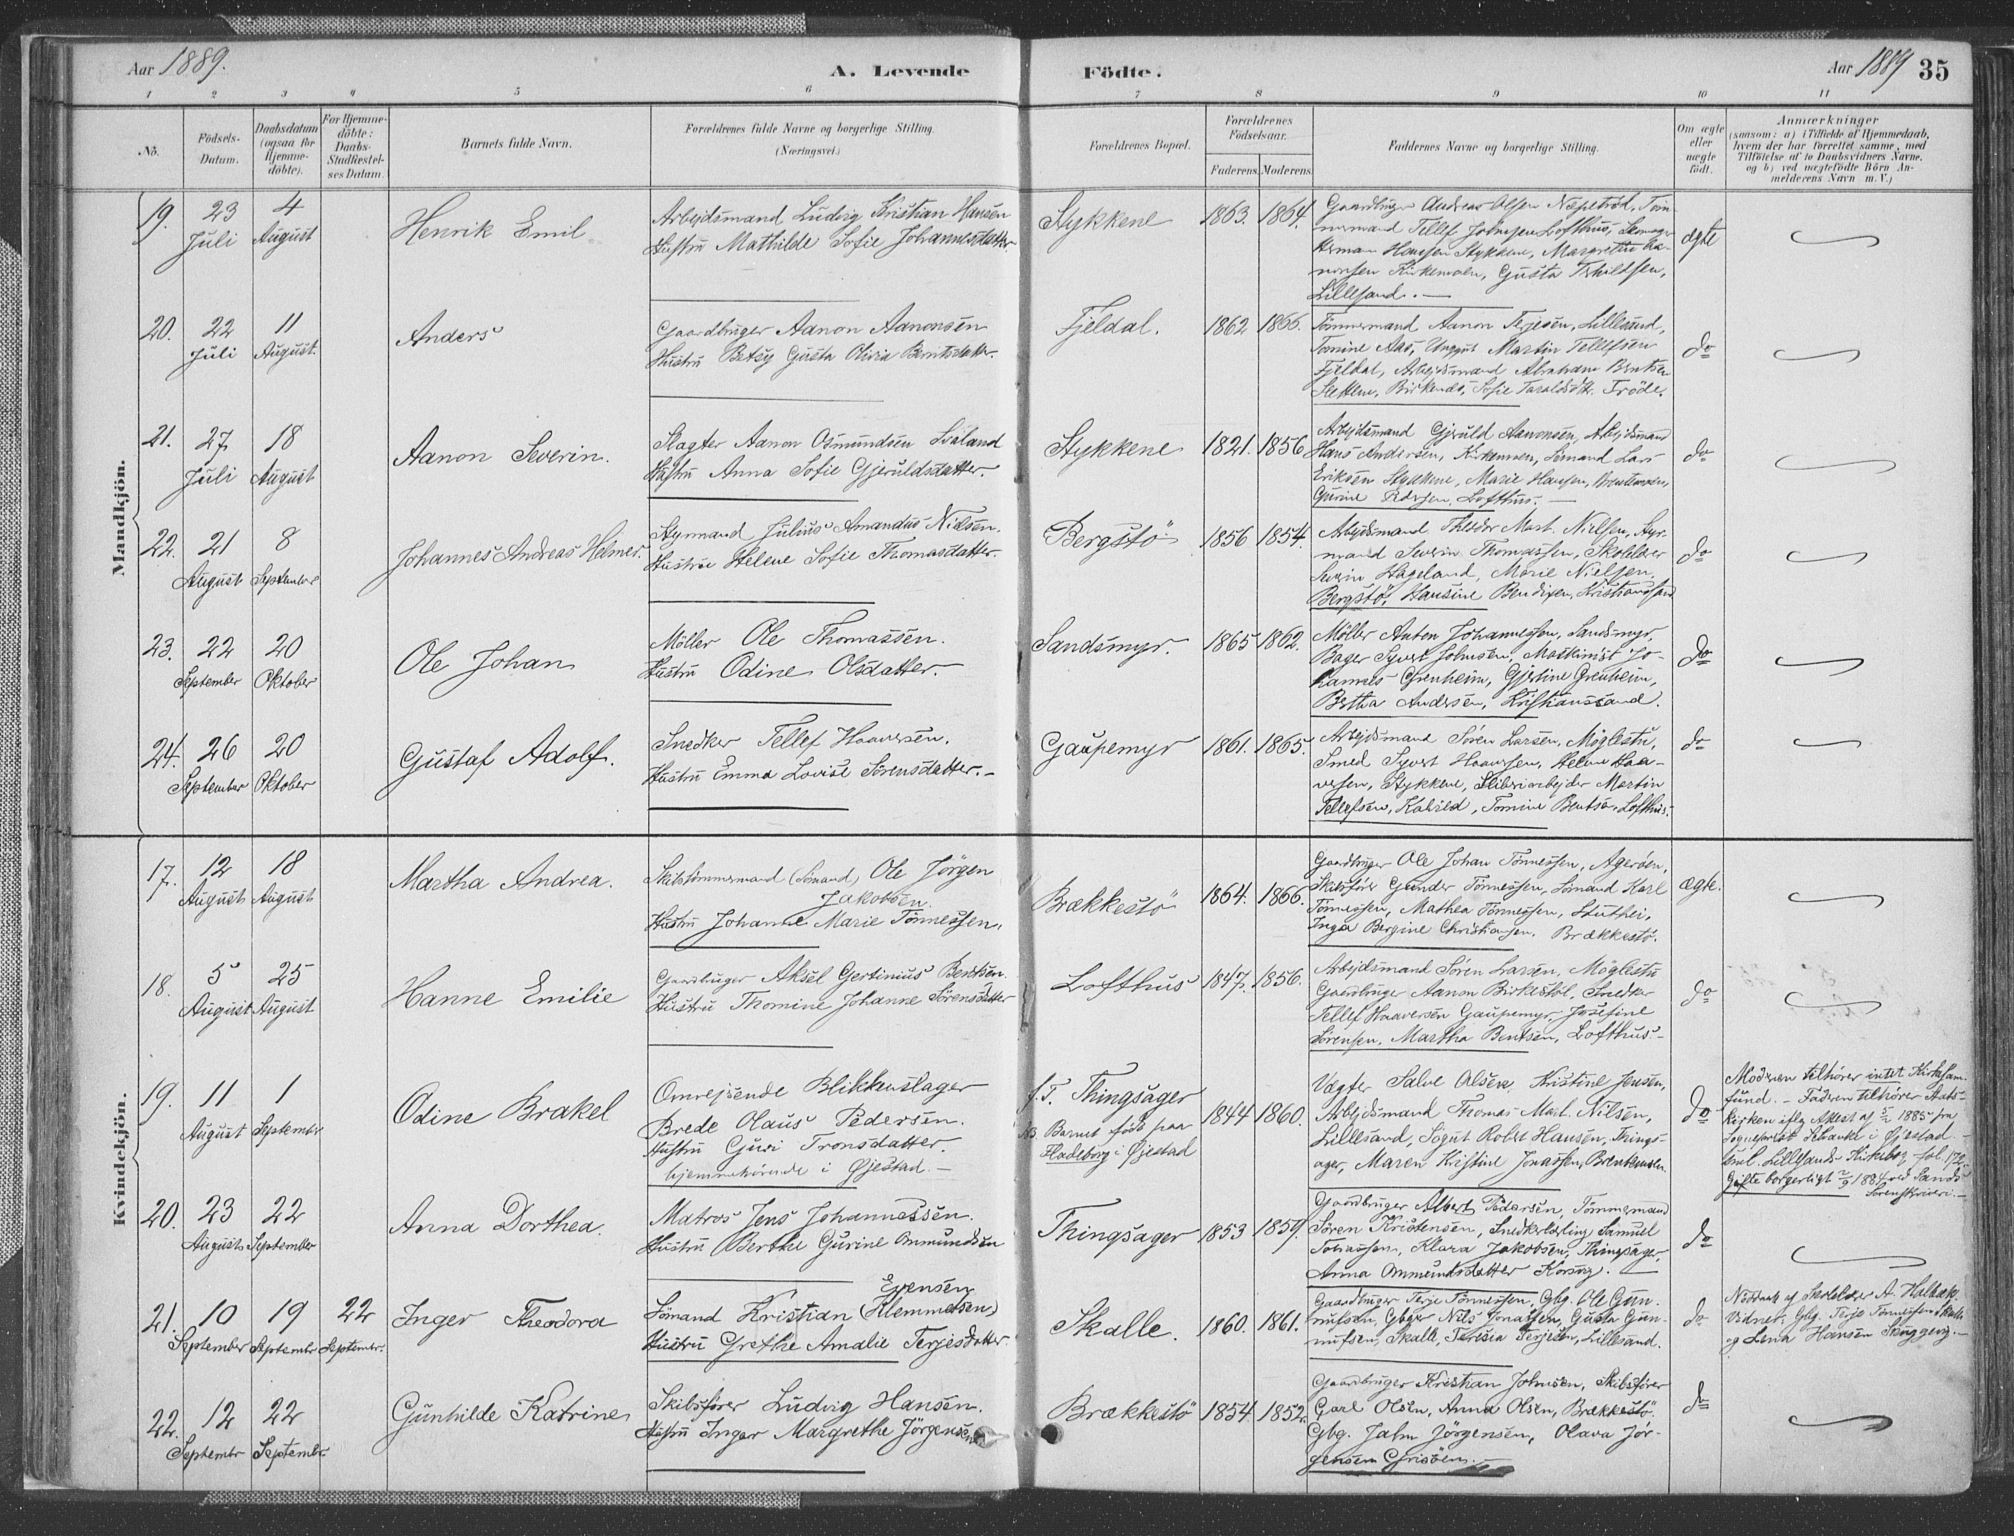 Aar 1889.
A. Levende
Födte.
Aar 1889
35
1 2 3 4 5 6 7 8 9 10 11
No.
Födsels-
Datum.
Daabsdatum
(ogsaa for
Hjemme-
döbte).
For Hjemme-
döbte:
Daabs-
Stadfæstel-
ses Datum.
Barnets fulde Navn.
Forældrenes fulde Navne og borgerlige Stilling.
(Næringsvei.)
Forældrenes Bopæl.
Forældrenes
Födselsaar.
Faderens. Moderens.
Faddernes Navne og borgerlige Stilling.
Om ægte
eller
uægte
födt.
Anmærkninger
(saasom: a) i Tilfælde af Hjemmedaab,
hvem der har forrettet samme, med
Tilföielse af to Daabsvidners Navne,
og b) ved uægtefödte Börn An-
melderens Navn m. V.)
Mandkjön.
19.
23
Juli
4
August
Henrik Emil
Arbejdsmand Ludvig Kristian Hansen
Hustru Mathilde Sofie Johannesdatter
Stykkene
1863. 1864.
Gaardbruger Andreas Olsen Tøm-
mermand Tellef Johnsen Lofthus,
Herman Hansen Stykkene, Margrethe Aa-
nonsen Kirkemoen, Gusta
Lillesand.
ægte
20.
22
Juli
11
August.
Anders
Gaardbruger Aanon Aanonsen
Hustru Betsy Gusta Olivia Berntsdatter.
Fjeldal.
1862 1866.
Tömmermand Aanon Terjesen, Lillesand,
Tomine Aas, Ungkut Martin Tellefsen
Fjeldal, Arbejdsmand Abraham Bentsen
Birkenes, Sofie Taraldsdtr.
do
21.
27
Juli
18
August
Aanon Severin.
Slagter Aanon Osmundsen
Hustru Anna Sofie Gjeruldsdatter.
Stykkene
1821. 1856
Arbejdsmand Gjeruld Aanonsen, Arbejdsmand
Hans Andersen, Kirkemoen, Sömand Lars
Eriksen Stykkene, Marie Hansen,
Gurine Lofthus.
do
22.
21
August
8
September
Johannes Andreas Helmer.
Styrmand Julius Amandus Nielsen.
Hustru Helene Sofie Thomasdatter.
Bergstö
1856 1854.
Arbejdsmand Theodor Mart. Nielsen, Styr-
mand Severin Thomassen, Skolelærer
Severin Hageland, Marie Nielsen
Bergstö, Hansine Bendixen, Kristianssand
do
23.
22
September
20
Oktober
Ole Johan
Möller Ole Thomassen.
Hustru Odine Olsdatter.
Sandsmyr.
1865 1862.
Möller Anton Johannessen, Sandsmyr,
Bager Syvert Johnsen, Maskinist Jo-
hannes Grenheim, Gjertine Grenheim,
Bertha Andersen, Kristianssand.
do
24.
26
September
20
Oktober
Gustaf Adolf.
Snedker Tellef Haaversen.
Hustru Emma Lovise Sörensdatter.
Gaupemyr
1861. 1865.
Arbejdsmand Sören Larsen, Möglestu,
Smed Syvert Haaversen, Helene Haa-
versen, Stykkene, Sliberiarbejder Martin
Tellefsen, Tomine Bentsen, Lofthus.
do
Kvindekjön.
17.
12
August
18
August
Martha Andrea.
Skibstömmermand (Sömand) Ole Jörgen
Jakobsen.
Hustru Johanne Marie Tönnessen.
Brækkestö
1864. 1866.
Gaardbruger Ole Johan Tönnessen, Agerøen,
Skibsförer Gunder Tönnessen, Sömand Karl
Tönnessen, Mathea Tönnessen,
Inga Bergine Christiansen. Brækkestö.
ægte.
18.
5
August
25
August
Hanne Emilie
Gaardbruger Aksel Gertinius Bentsen.
Hustru Thomine Johanne Sörensdatter
Lofthus
1847. 1856.
Arbejdsmand Sören Larsen, Möglestu
Gaardbruger Aanon Snedker
Tellef Haaversen Gaupemyr, Josefine
Sörensen, Martha Bentsen, Lofthus.
do
19.
11
August
1
September
Odine Brakel
Omrejsende Blikkenslager
Brede Olaus Pedersen.
Hustru Guri Tronsdatter.
hjemmehörende i Øjestad.
f. T. Thingsager
Barnet födt paa
Hadeborg i Øjestad
1844 1860.
Vægter Salve Olsen, Kristine Jensen,
Arbejdsmand Thomas Mart. Nilsen,
Lillesand, Robert Hansen, Things-
ager, Maren Kristine Jonassen,
do
Moderen tilhører intet Kirkesam-
fund. Faderen tilhører Stats-
kirken iflg. Attest af 1885 fra
Sogneprest i Øjestad
Lillesands Kirkebog fol. 172
Gifte borgerligt 1884 ved Sands
Sorenskriveri.
20.
23
August
22
September
Anna Dorthea.
Matros Jens Johannessen.
Hustru Berthe Gurine Ommundsen
Thingsager
1853 1859.
Gaardbruger Albert Pedersen, Tömmermand
Sören Kristensen, Snedkerlærling Samuel
Klara Jakobsen, Thingsager,
Anna Ommundsdatter
do
21.
10
September
19
September
22
September.
Inger Theodora
Evensen
Sömand Kristian (Klemmetsen)
Hustru Grethe Amalie Terjesdatter.
Skalle.
1860. 1861.
Gaardbruger Terje Tönnessen, Gbg. Ole Gun-
nufsen, Gbger Nils Jonassen, Gusta Gun-
nufsen, Skalle, Teresia Terjesen, Lillesand.
do
af Skolelærer A.
Vidner: Gbg. Terje Tönnessen Skalle
og Lena Hansen
22.
12
September
22
September
Gunhilde Katrine
Skibsförer Ludvig Hansen.
Hustru Inger Margrethe Jörgensen
Brækkestö
1854. 1852.
Gaardbruger Kristian Johnsen, Skibsförer
Carl Olsen, Anna Olsen, Brækkestö.
Gbg. Jahn Jörgensen, Olava Jör-
gensen
do